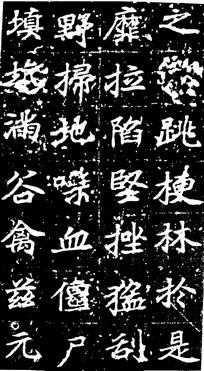 之跳林於是
靡拉陷堅挫猛刮
野掃地喋血僵尸
填滿谷禽茲元